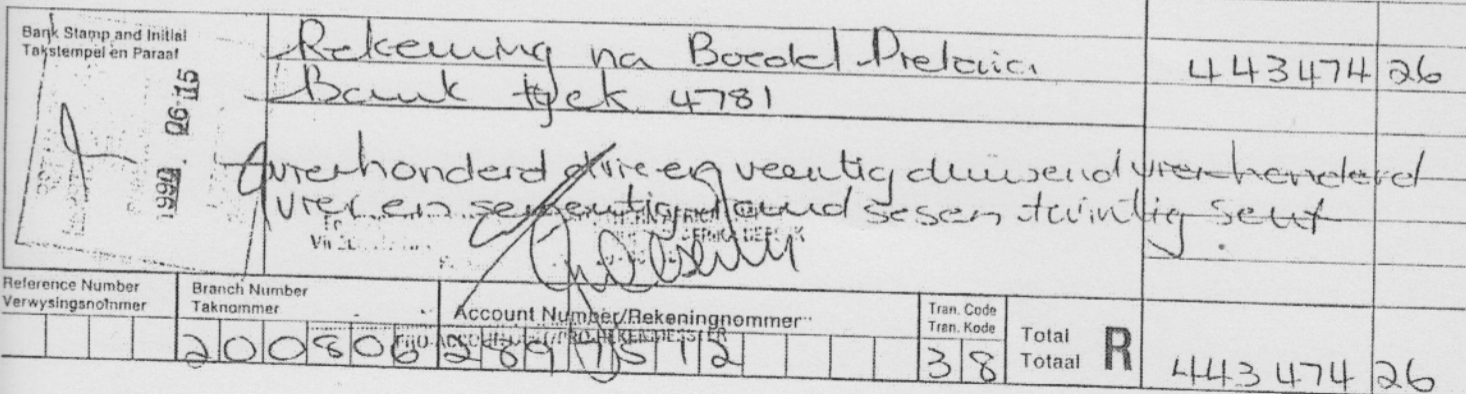 Bank Stamp and Initial
Takstempel en Paraaf
1990. 06 15
Rekening na Boedel Pretoria 443474 26
Bank tjek 4781
vierhonderd drie en veertig duisend vierhonderd
vier en sewentig rand ses en twintig sent
Reference Number
Verwysingsnommer
Branch Number
Taknommer
Account Number/Rekeningnommer
Tran. Code
Tran. Kode
Total
Totaal
R
200806 2897512 38 443474 26
PRO ACCOUNTANT/PRO REKENMEESTER